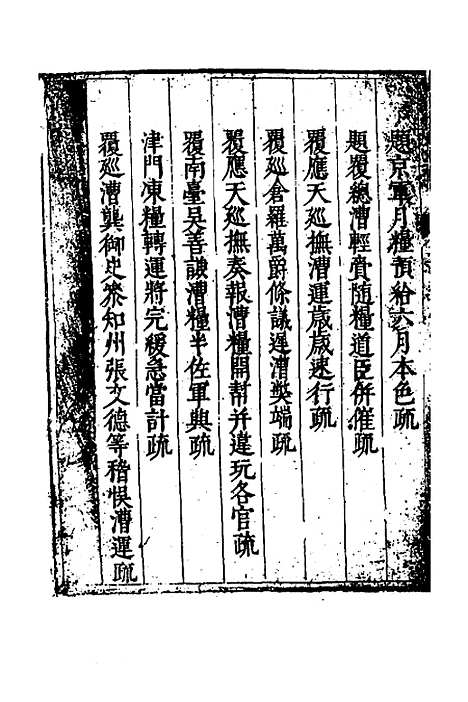 題京軍月糧預給六月本色疏
題覆總漕輕賫随糧道臣併催疏
覆應天廵撫漕運歲歲速行疏
覆廵倉羅萬爵條議遲漕獘端疏
覆應天廵撫奏報漕糧開幫并違玩各官疏
覆南臺吴善謙漕糧半佐軍興疏
津門凍糧轉運將完緩急當計疏
覆廵漕龔御史叅知州張文德等稽悞漕運疏